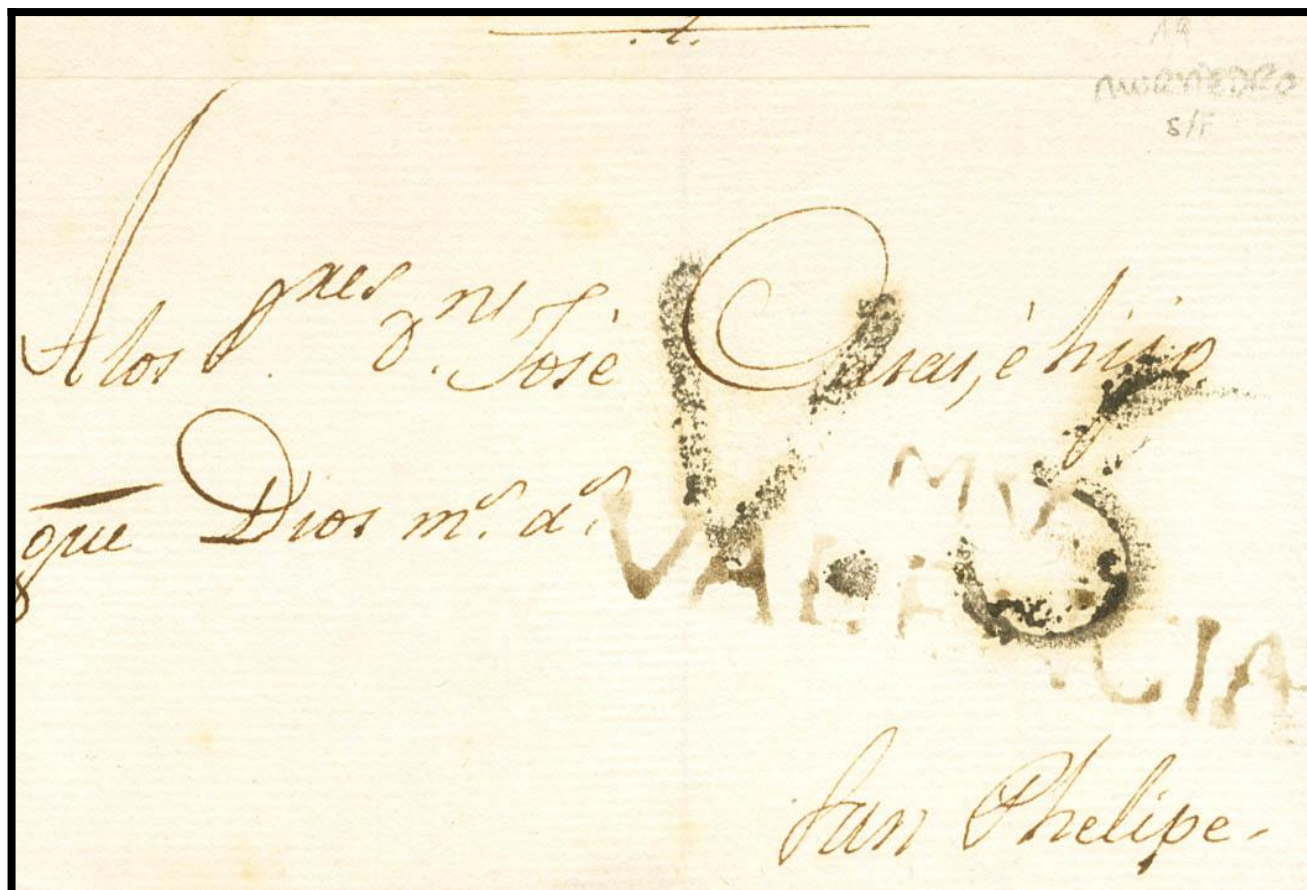 A4
MURVIEDRO
S/F
A los S.res D.ns José Casas, é hijo
que Dios m.s a.s
V 5
MV
VALENCIA
San Phelipe.